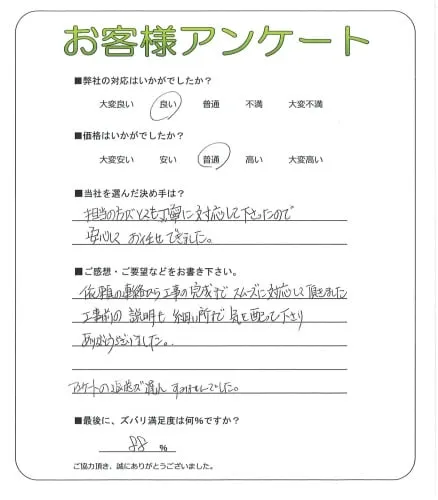 お客様アンケート
■弊社の対応はいかがでしたか？
大変良い 良い 普通 不満 大変不満
■価格はいかがでしたか？
大変安い 安い 普通 高い 大変高い
■当社を選んだ決め手は？
担当の方がとても丁寧に対応して下さったので
安心して お任せできました。
■ご感想・ご要望などをお書き下さい。
依頼の連絡から工事の完成まで スムーズに対応して頂きました
工事前の 説明も 細い所まで 気を配って下さり
ありがとうございました。
アンケートの返送が遅れ すみませんでした。
■最後に、ズバリ満足度は何%ですか？
88 %
ご協力頂き、誠にありがとうございました。